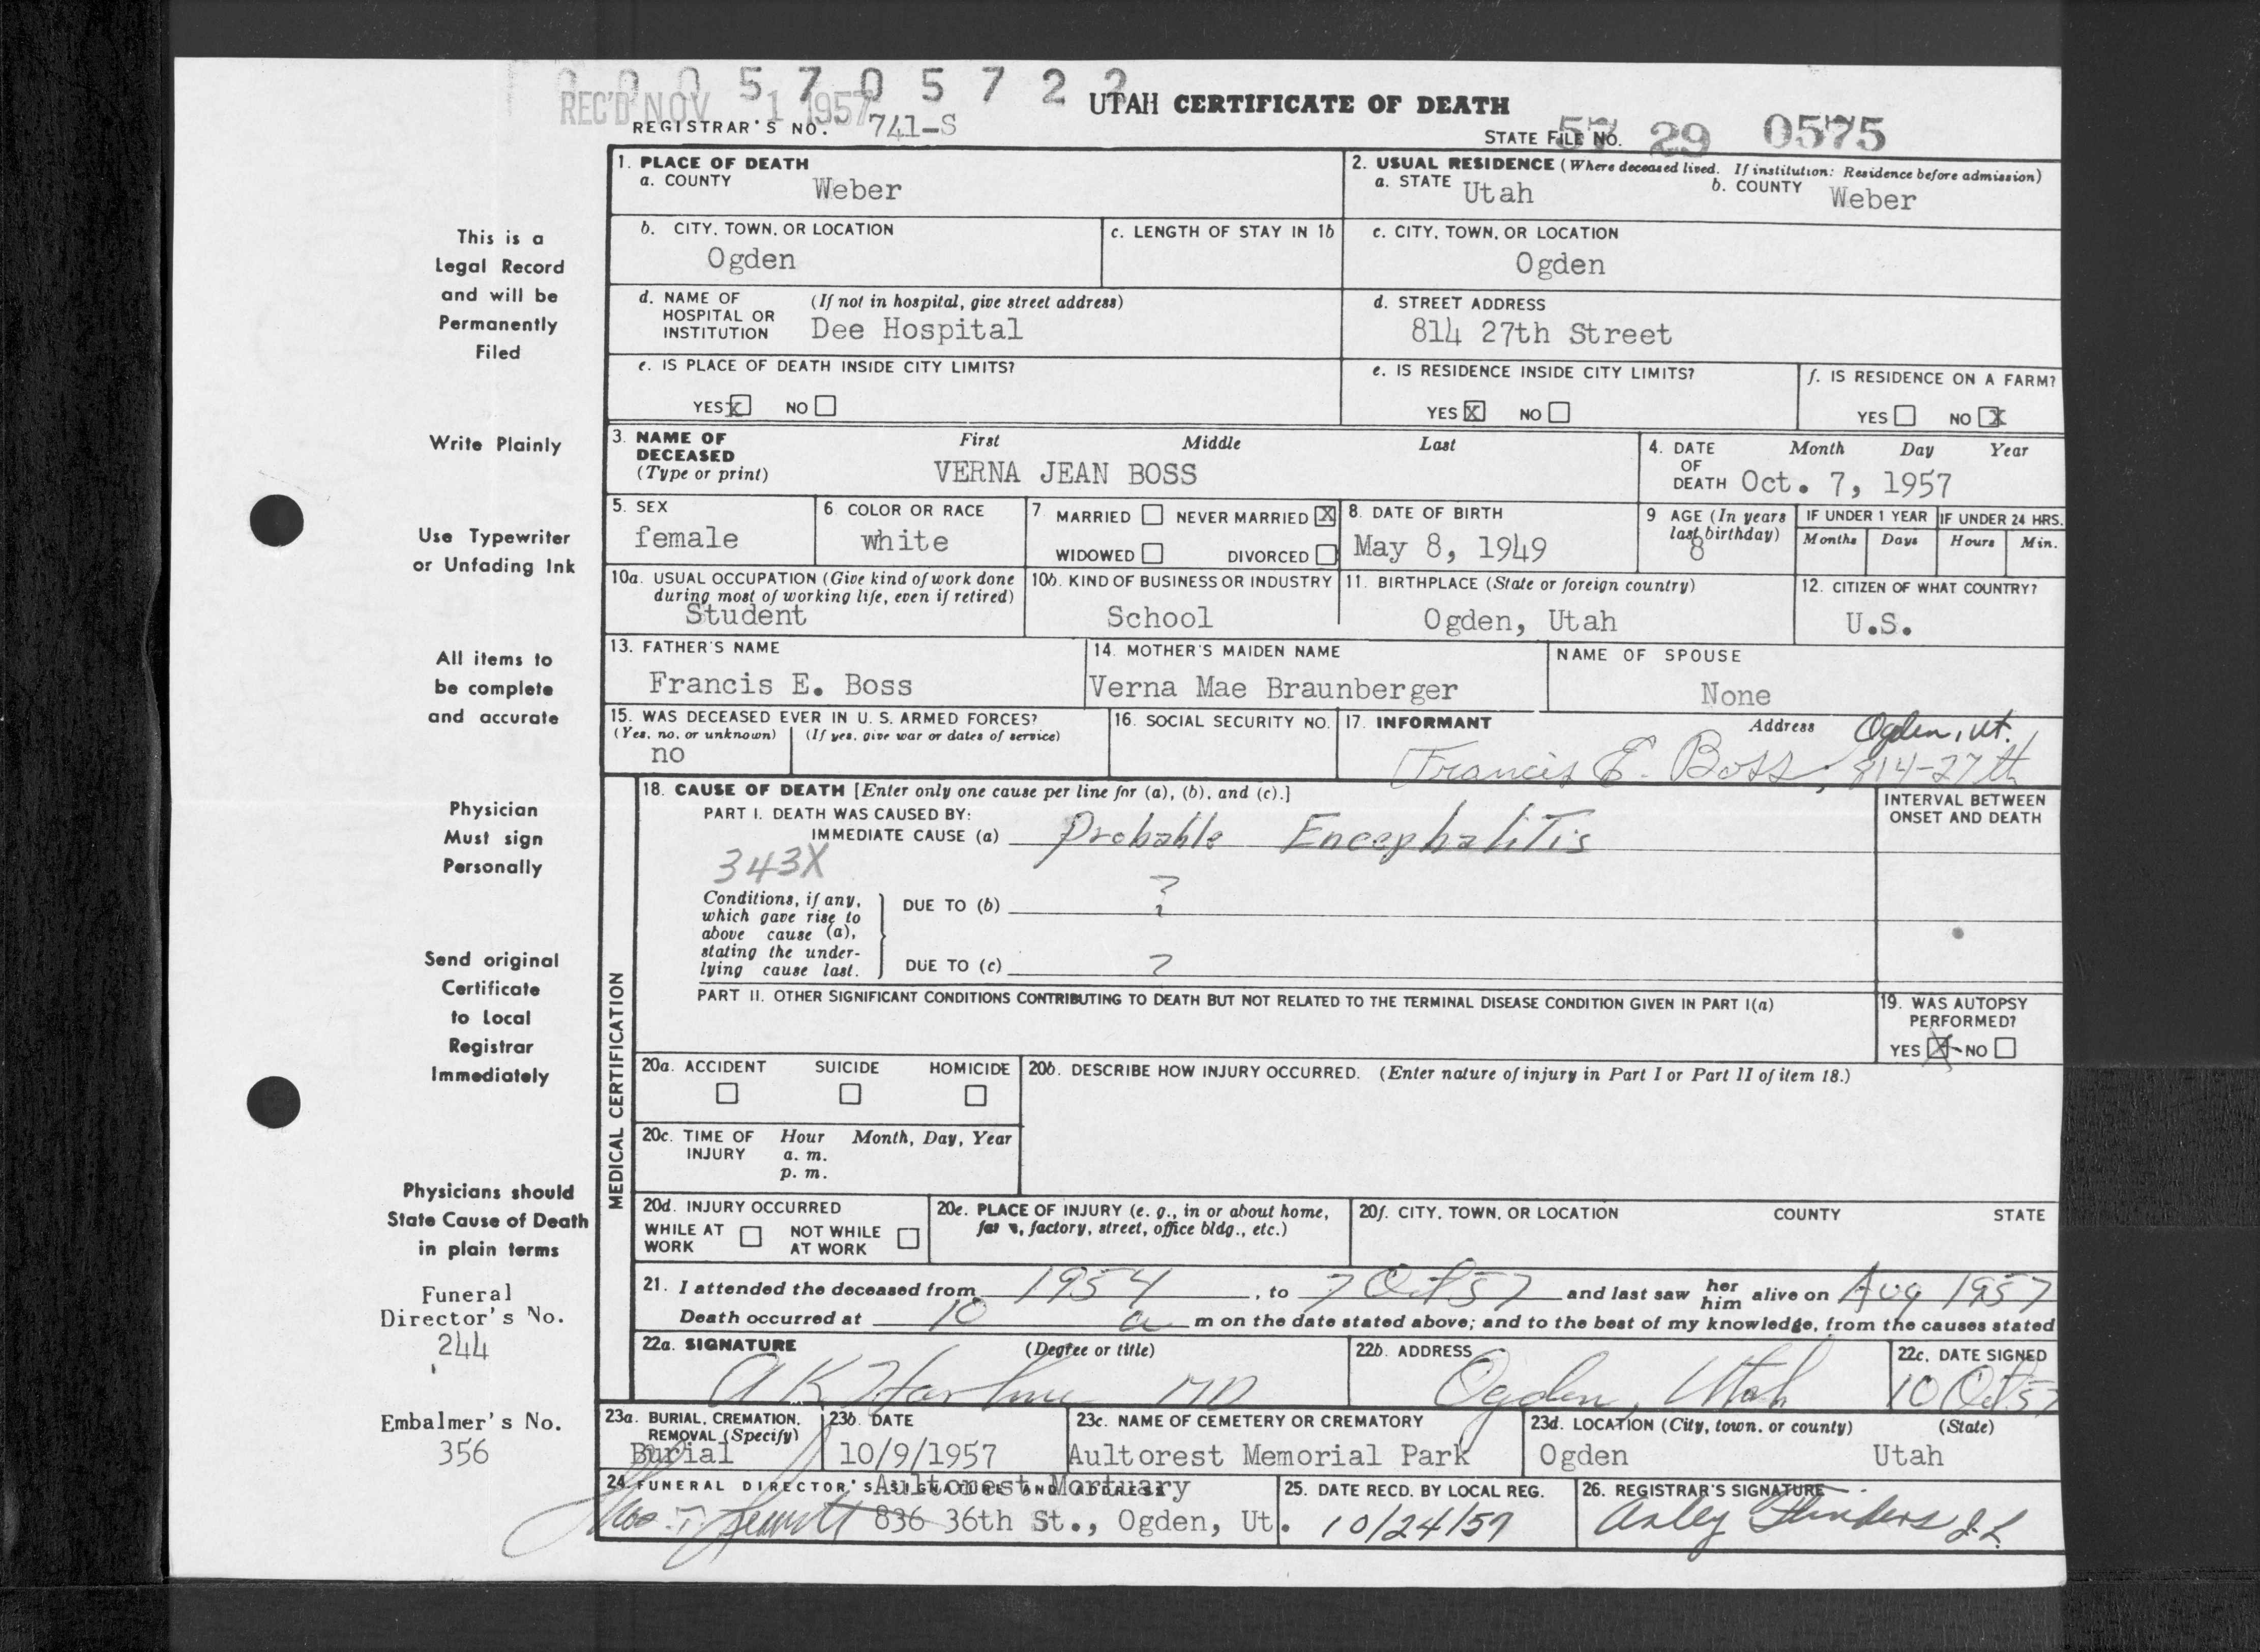 0 0 0 5 7 0 5 7 2 2
REC'D NOV 1 1957
UTAH CERTIFICATE OF DEATH
REGISTRAR'S NO. 741-S
STATE FILE NO. 57 29 0575
This is a
Legal Record
and will be
Permanently
Filed
Write Plainly
Use Typewriter
or Unfading Ink
All items to
be complete
and accurate
Physician
Must sign
Personally
Send original
Certificate
to Local
Registrar
Immediately
Physicians should
State Cause of Death
in plain terms
Funeral
Director's No.
244
Embalmer's No.
356
1. PLACE OF DEATH
a. COUNTY Weber
2. USUAL RESIDENCE (Where deceased lived. If institution: Residence before admission)
a. STATE Utah b. COUNTY Weber
b. CITY, TOWN, OR LOCATION
Ogden
c. LENGTH OF STAY IN 1b
c. CITY, TOWN, OR LOCATION
Ogden
d. NAME OF HOSPITAL OR INSTITUTION (If not in hospital, give street address)
Dee Hospital
d. STREET ADDRESS
814 27th Street
e. IS PLACE OF DEATH INSIDE CITY LIMITS?
YES X NO
e. IS RESIDENCE INSIDE CITY LIMITS?
YES X NO
f. IS RESIDENCE ON A FARM?
YES NO X
3. NAME OF DECEASED (Type or print) First Middle Last
VERNA JEAN BOSS
4. DATE OF DEATH Month Day Year
Oct. 7, 1957
5. SEX
female
6. COLOR OR RACE
white
7. MARRIED NEVER MARRIED X
WIDOWED DIVORCED
8. DATE OF BIRTH
May 8, 1949
9 AGE (In years last birthday)
8
IF UNDER 1 YEAR
Months Days
IF UNDER 24 HRS.
Hours Min.
10a. USUAL OCCUPATION (Give kind of work done during most of working life, even if retired)
Student
10b. KIND OF BUSINESS OR INDUSTRY
School
11. BIRTHPLACE (State or foreign country)
Ogden, Utah
12. CITIZEN OF WHAT COUNTRY?
U.S.
13. FATHER'S NAME
Francis E. Boss
14. MOTHER'S MAIDEN NAME
Verna Mae Braunberger
NAME OF SPOUSE
None
15. WAS DECEASED EVER IN U. S. ARMED FORCES?
(Yes, no, or unknown) (If yes, give war or dates of service)
no
16. SOCIAL SECURITY NO.
17. INFORMANT Address Ogden, Ut.
Francis E. Boss, 814-27th
MEDICAL CERTIFICATION
18. CAUSE OF DEATH [Enter only one cause per line for (a), (b), and (c).]
INTERVAL BETWEEN ONSET AND DEATH
PART I. DEATH WAS CAUSED BY:
IMMEDIATE CAUSE (a) Probable Encephalitis
343X
Conditions, if any, which gave rise to above cause (a), stating the underlying cause last.
DUE TO (b) ?
DUE TO (c) ?
PART II. OTHER SIGNIFICANT CONDITIONS CONTRIBUTING TO DEATH BUT NOT RELATED TO THE TERMINAL DISEASE CONDITION GIVEN IN PART I(a)
19. WAS AUTOPSY PERFORMED?
YES X NO
20a. ACCIDENT SUICIDE HOMICIDE
20b. DESCRIBE HOW INJURY OCCURRED. (Enter nature of injury in Part I or Part II of item 18.)
20c. TIME OF INJURY Hour Month, Day, Year
a. m.
p. m.
20d. INJURY OCCURRED
WHILE AT WORK NOT WHILE AT WORK
20e. PLACE OF INJURY (e. g., in or about home, farm, factory, street, office bldg., etc.)
20f. CITY, TOWN, OR LOCATION COUNTY STATE
21. I attended the deceased from 1954, to 7 Oct 57 and last saw her him alive on Aug 1957
Death occurred at 10 a m on the date stated above; and to the best of my knowledge, from the causes stated
22a. SIGNATURE (Degree or title)
A K MD
22b. ADDRESS
Ogden, Utah
22c. DATE SIGNED
10 Oct 57
23a. BURIAL, CREMATION, REMOVAL (Specify)
Burial
23b. DATE
10/9/1957
23c. NAME OF CEMETERY OR CREMATORY
Aultorest Memorial Park
23d. LOCATION (City, town, or county) (State)
Ogden Utah
24 FUNERAL DIRECTOR'S SIGNATURE AND ADDRESS
Aultorest Mortuary
836 36th St., Ogden, Ut.
25. DATE RECD. BY LOCAL REG.
10/24/57
26. REGISTRAR'S SIGNATURE